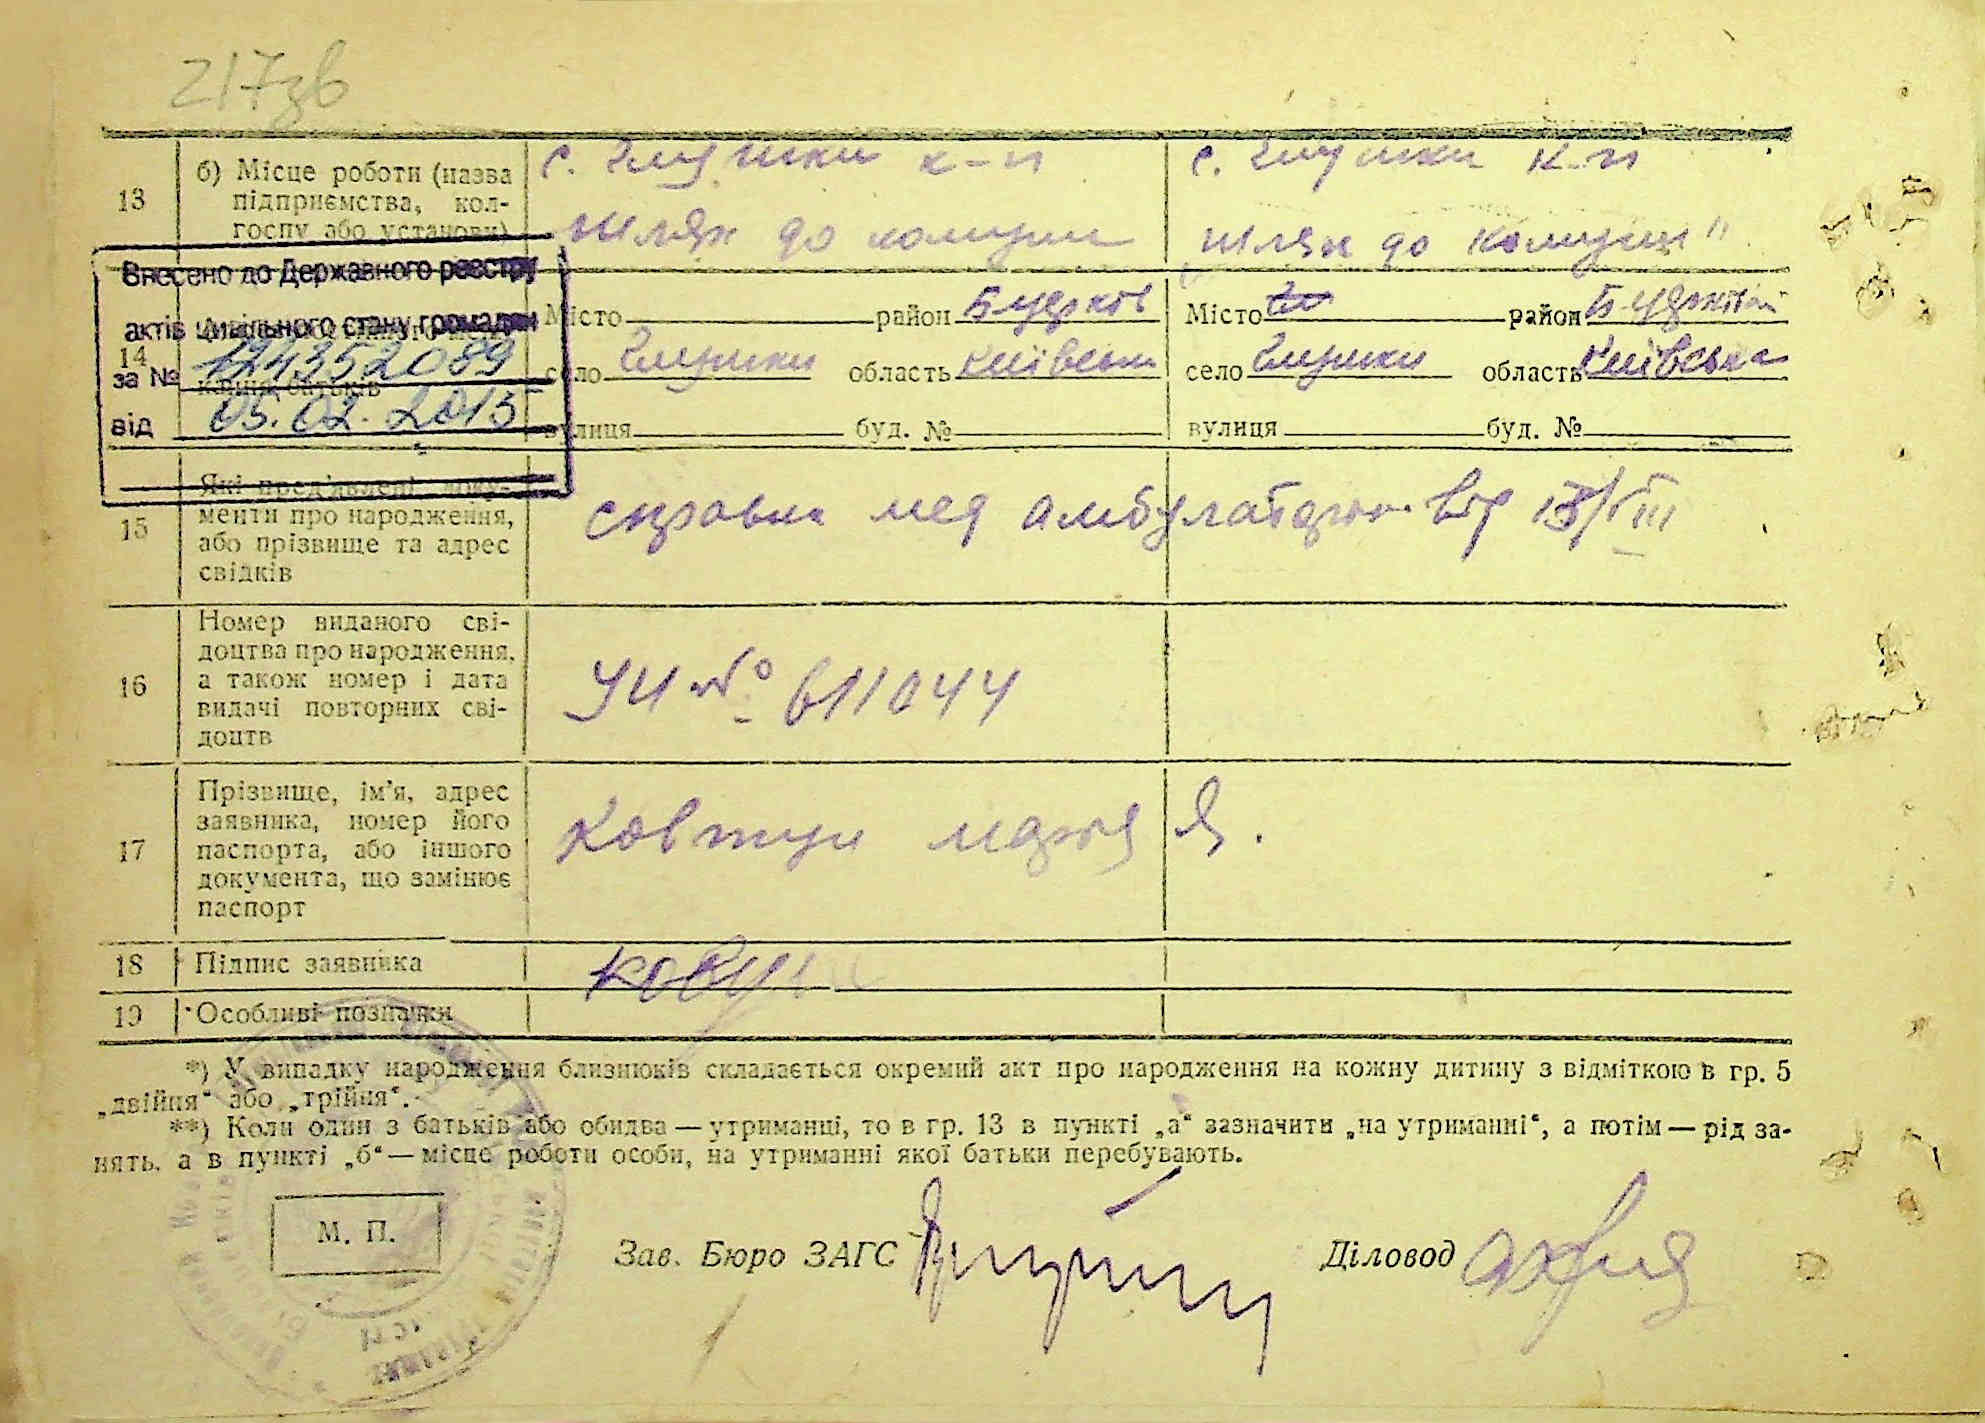 217зв
13
б) Місце роботи (назва
підприємства, кол-
госпу або установи)
с. Глушки к-п
шлях до комуни
с. Глушки к-п
"шлях до комуни"
Внесено до Державного реєстру
актів цивільного стану громадян
за № 124352089
від 05.02.2015
14
Місто район
село Глушки область Київська
вулиця буд. №
Місто район
село Глушки область Київська
вулиця буд. №
15
Які пред'явлені доку-
менти про народження,
або прізвище та адрес
свідків
справка мед амбулаторії від
16
Номер виданого сві-
доцтва про народження,
а також номер і дата
видачі повторних сві-
доцтв
УЧ № 611044
17
Прізвище, ім'я, адрес
заявника, номер його
паспорта, або іншого
документа, що замінює
паспорт
Ковтун Марія Я.
18
Підпис заявника
19
Особливі познаки
*) У випадку народження близнюків складається окремий акт про народження на кожну дитину з відміткою в гр. 5
„двійня“ або „трійня“.
**) Коли один з батьків або обидва — утриманці, то в гр. 13 в пункті „а“ зазначити „на утриманні“, а потім — рід за-
нять, а в пункті „б“ — місце роботи особи, на утриманні якої батьки перебувають.
М. П.
Зав. Бюро ЗАГС
Діловод